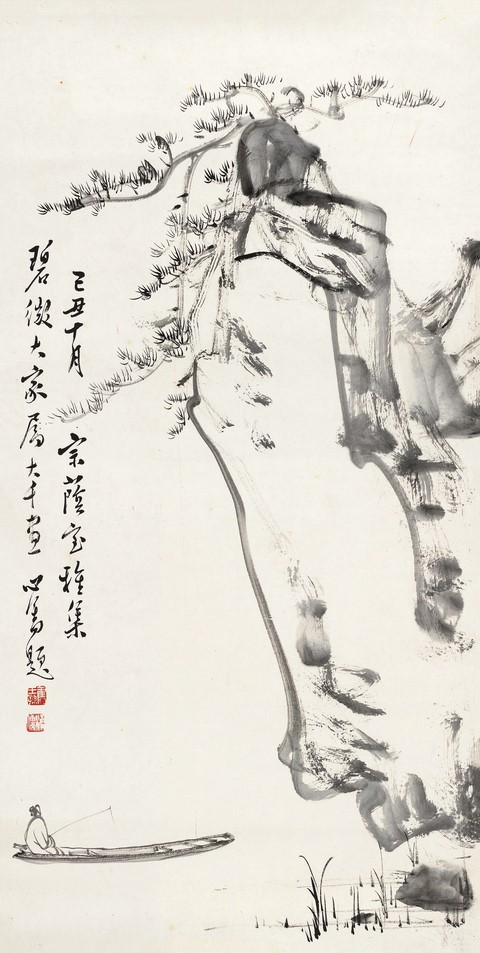 己丑十月 宗蔭室雅集
碧微大家屬大千畫 心畬題